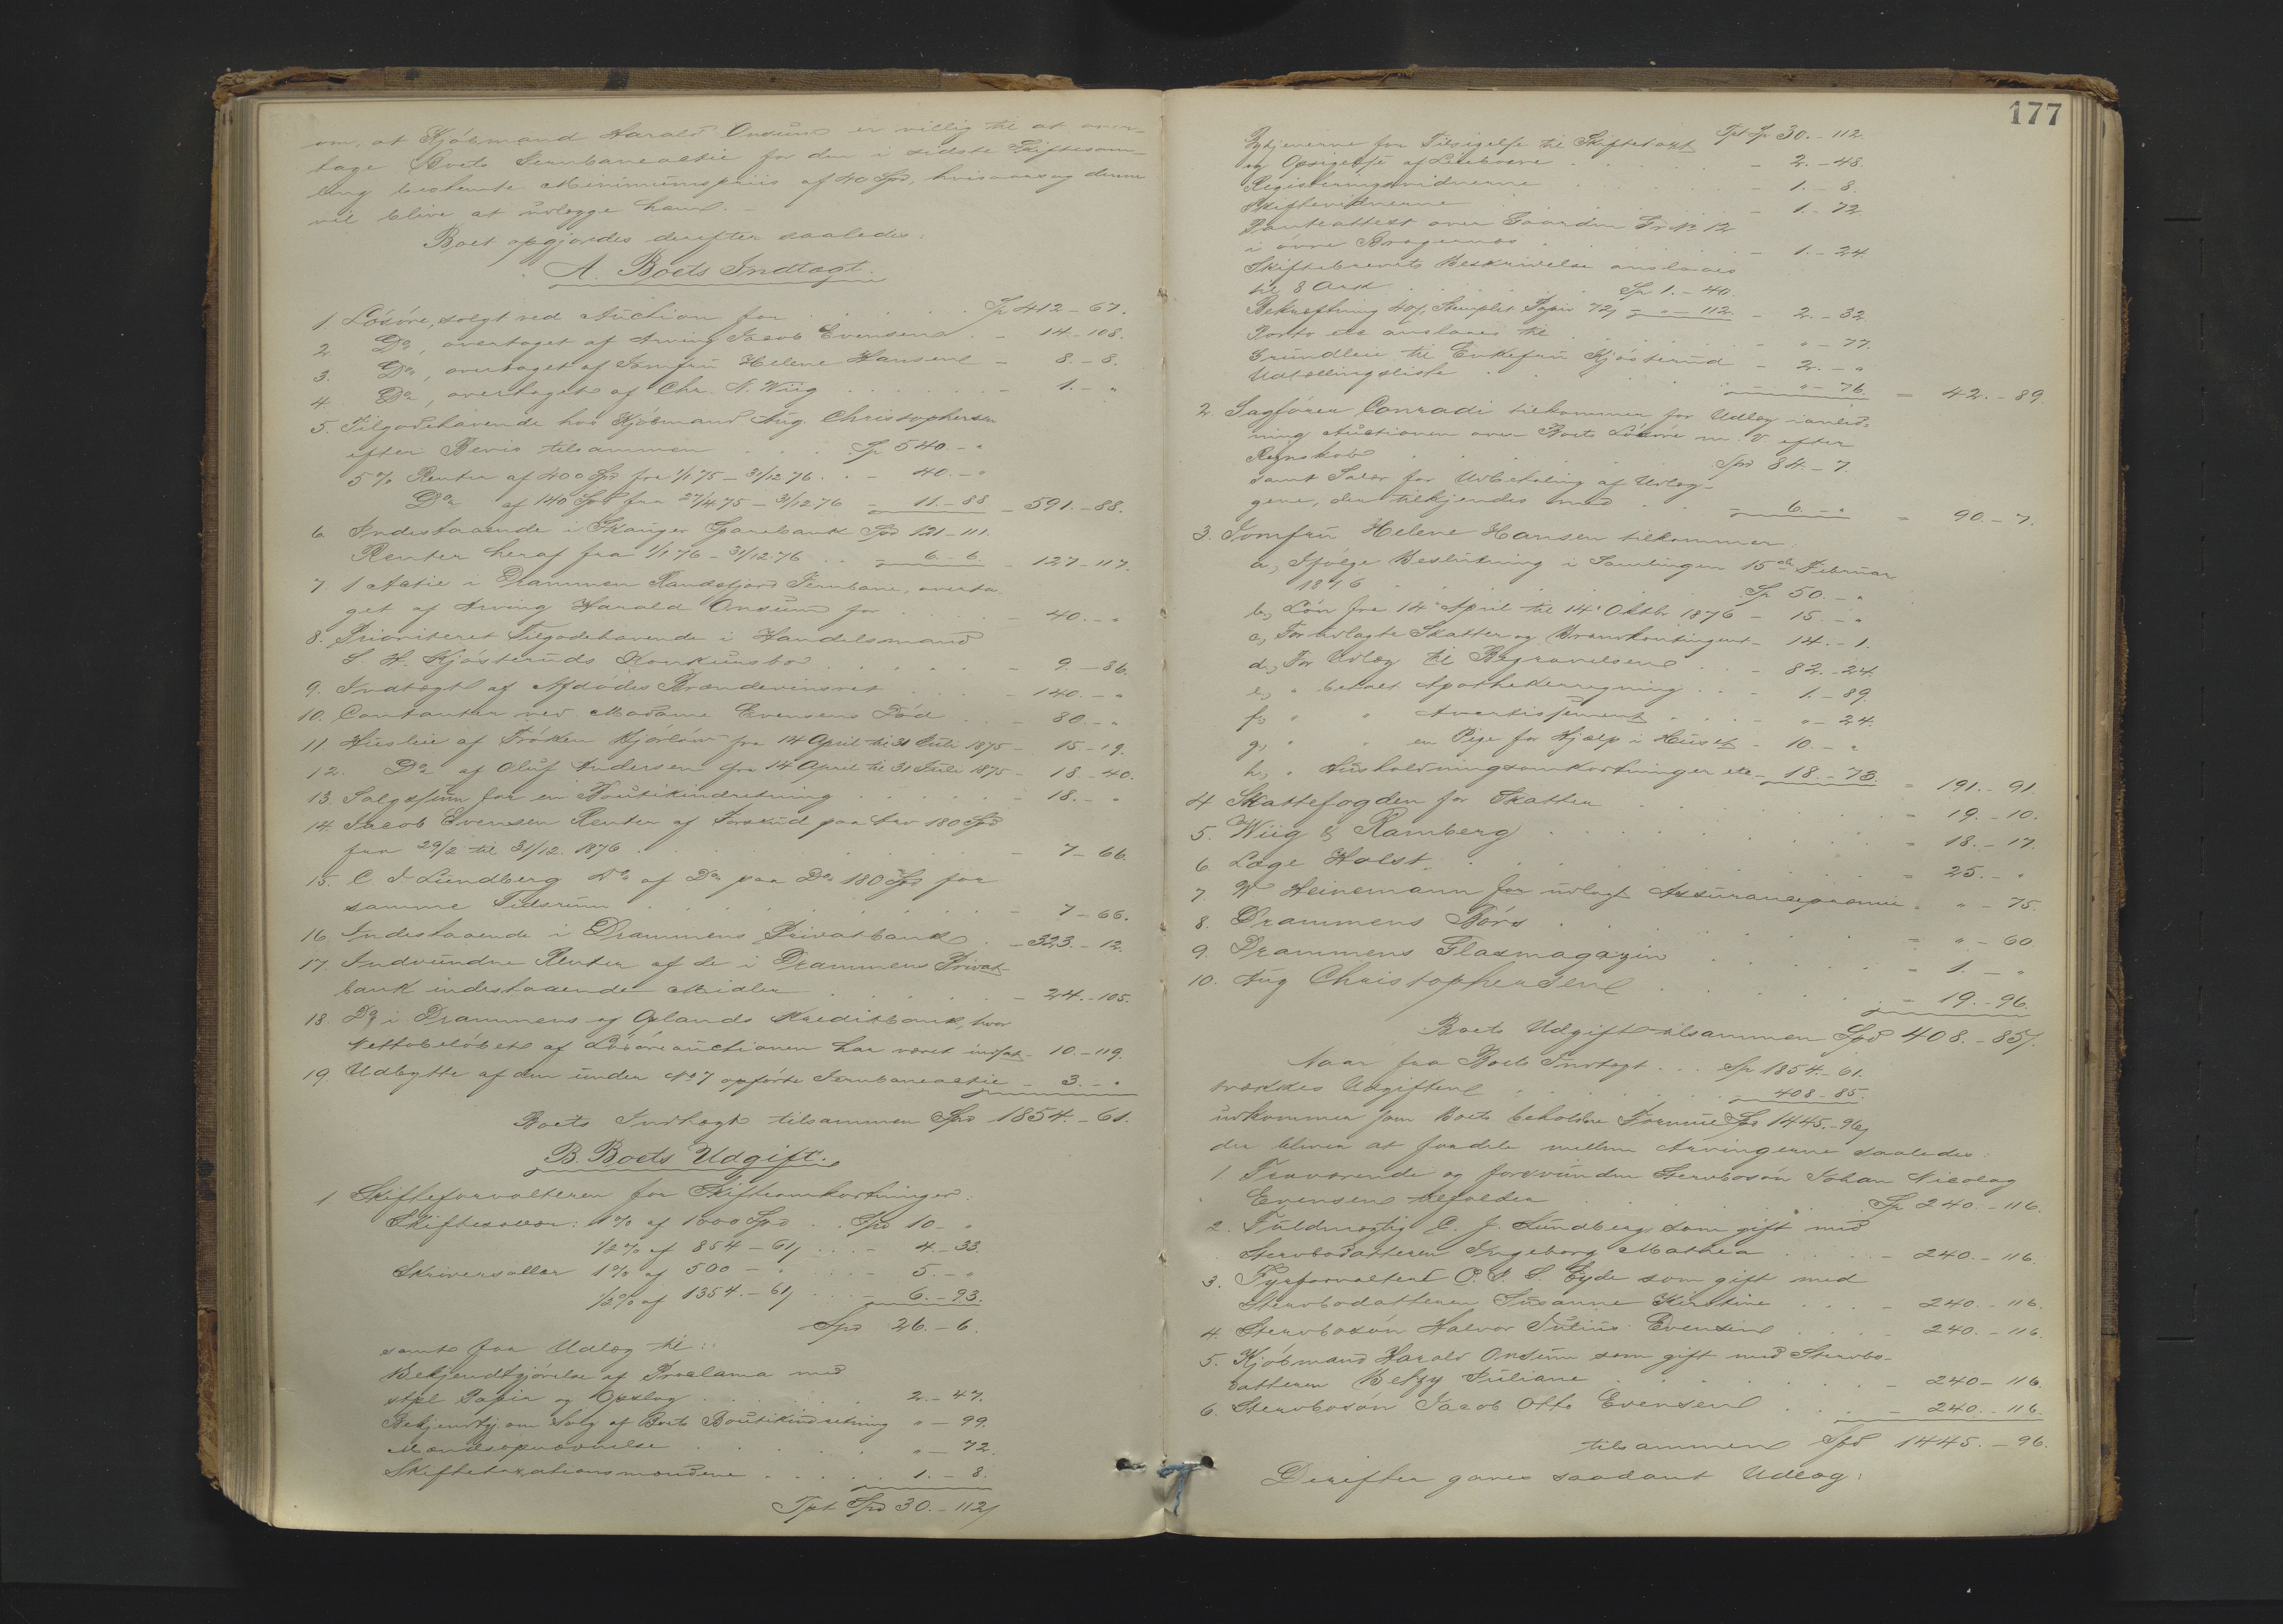 om, at Kjøbmand Harald Onsum er villig til at over-
tage Boets Jernbaneaktie for den i sidste Skiftesam-
ling bestemte Minimumspriis af 40 Spd, hvisaarsag denne
vil blive at udlægge ham. –
Boet opgjordes derefter saaledes:
A. Boets Indtægt.
1. Løsøre, solgt ved Auction for . . . . Sp 412 – 67.
2. Do, overtaget af Arving Jacob Evensen . – 14. – 108.
3. Do, overtaget af Jomfru Helene Hansen – 8. – 8.
4. Do, overtaget af Chr. N. Wiig . . . . – 1. – "
5. Tilgodehavende hos Kjøbmand Aug. Christophersen
efter Bevis tilsammen . . . Sp 540. – "
5 % Renter af 400 Spd fra 1/1 75 – 31/12 76 . . – 40. – "
Do af 140 Spd fra 27/4 75 – 31/12 76 – 11. – 88 – 591. – 88.
6. Indestaaende i Skauger Sparebank Spd 121 – 111.
Renter heraf fra 1/1 76 – 31/12 76 . . – 6 – 6. – 127 – 117.
7. 1 Actie i Drammen Randsfjord Jernbane, overta-
get af Arving Harald Onsum for . . . – 40. – "
8. Prioriteret Tilgodehavende i Handelsmand
S. H. Kjøsteruds Konkursbo . . . . . – 9. – 86.
9. Indtægt af Afdødes Brændevinsret . . . – 140. – "
10. Contanter ved Madame Evensens Død . . – 80. – "
11. Husleie af Frøken Kjørløw fra 14 April til 31 Juli 1875 – 15 – 19.
12. Do af Oluf Andersen fra 14 April til 31 Juli 1875 – 18. – 40.
13. Salgssum for en Boutikindretning . . . . – 18. – "
14. Jacob Evensen Renter af Forskud paa Arv 180 Spd
fra 29/2 til 31/12. 1876 . . . . . . – 7 – 66.
15. C. J. Lundberg Do af Do paa Do 180 Spd for
samme Tidsrum . . . . . . – 7 – 66.
16. Indestaaende i Drammens Privatbank . – 323. – 12.
17. Indvundne Renter af de i Drammens Privat-
bank indestaaende Midler . . . . . – 24. – 105.
18. Do i Drammens og Oplands Kreditbank, hvor
Nettobeløbet af Løsøreauctionen har været indsat – 10. – 119.
19. Udbytte af den under No 7 opførte Jernbaneactie – 3. – "
Boets Indtægt tilsammen Spd 1854. – 61.
B. Boets Udgift.
1. Skifteforvalteren for Skifteomkostninger:
Skiftesallær: 1 % af 1000 Spd . . Spd 10 – "
1/2 % af 854 – 61 . . . – 4. – 33.
Skriversallær 1 % af 500 – " . . . – 5. – "
1/2 % af 1354. – 61 . . . – 6. – 93.
Spd 26. – 6.
samt for Udlæg til:
Bekjendtgjørelse af Proclama med
stpl. Papir og Opslag . . . . . 2. – 47.
Bekjendtgj. om Salg af Boets Boutikindretning " – 99.
Mændsopnævnelse . . . . . . " – 72.
Skiftetaxationsmændene . . . . . 1. – 8.
Tpt Spd 30. – 112
177
Tpt Sp 30. – 112.
Bytjenerne for Tilsigelse til Skiftetaxt
og Opsigelse af Leieboere . . . . – 2. – 48.
Registreringsvidnerne . . . . – 1. – 8.
Skiftevidnerne . . . . . – 1. – 72
Panteattest over Gaarden Gr. No 12
i øvre Bragernæs . . . . . – 1. – 24.
Skiftebrevets Beskrivelse anslaaes
til 8 Ark . . . . . Sp 1. – 40.
Bekræftning 40/, Stemplet Papir 72/ – " – 112. – 2. – 32.
Porto etc anslaaes til . . . . – " – 77.
Grundleie til Enkefru Kjøsterud – 2. – "
Udtællingsliste . . . . . – " – 76. – 42. – 89.
2. Sagfører Conradi tilkommer for Udlæg i anled-
ning Auctionen over Boets Løsøre m. V. efter
Regnskab . . . . . Spd 84. – 7.
samt Salær for Udbetaling af Udlæg-
gene, der tilkjendes med . . . – 6. – " – 90. – 7.
3. Jomfru Helene Hansen tilkommer:
a, Ifølge Beslutning i Samlingen 15de Februar
1876 . . . . . . Sp 50. – "
b, Løn fra 14 April til 14 Oktbr 1876 – 15. – "
c, For udlagte Skatter og Brandkontingent – 14. – 1.
d, For Udlæg til Begravelsen . . – 82. – 24.
e, " betalt Apothekerregning . . – 1. – 89.
f, " " Avertissement . . . – " – 24.
g, " " en Pige for Hjælp i Huset – 10. – "
h, " Husholdningsomkostninger etc – 18. – 73. – 191. – 91.
4. Skattefogden for Skatter . . . . . – 19. – 10.
5. Wiig & Ramberg . . . . . . – 18. – 17.
6. Læge Holst . . . . . . – 25. – "
7. W Heinemann for udlagt Assurancepræmie – " – 75.
8. Drammens Børs . . . . . – " – 60
9. Drammens Glasmagazin . . . . – 1. – "
10. Aug Christophersen . . . . – 19. – 96.
Boets Udgift tilsammen Spd 408. – 85.
Naar fra Boets Indtægt . . . Sp 1854. – 61.
trækkes Udgiften . . . . . – 408 – 85.
udkommer som Boets beholdne Formue Spd 1445. – 96,
der bliver at fordele mellem Arvingerne saaledes:
1. Fraværende og forsvundne Stervbosøn Johan Nicolay
Evensen tilfalder . . . . Sp 240. – 116.
2. Fuldmægtig C. J. Lundberg som gift med
Stervbodatteren Ingeborg Mathea . . . – 240. – 116.
3. Fyrforvalter O. P. S. Eyde som gift med
Stervbodatteren Susanne Kirstine . . . – 240. – 116.
4. Stervbosøn Halvor Julius Evensen . . – 240. – 116.
5. Kjøbmand Harald Onsum som gift med Stervbo-
datteren Betzy Juliane . . . . – 240 – 116.
6. Stervbosøn Jacob Otto Evensen . . . – 240. – 116.
tilsammen Spd 1445. – 96.
Derefter gaves saadant Udlæg: